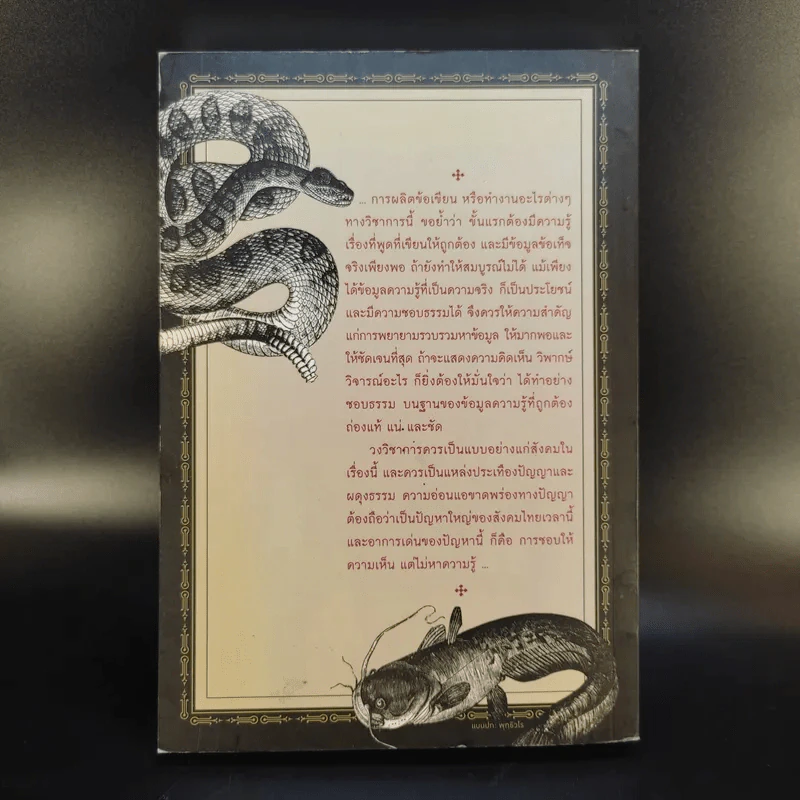 ... การผลิตข้อเขียน หรือทำงานอะไรต่างๆ
ทางวิชาการนี้ ขอย้ำว่า ขั้นแรกต้องมีความรู้
เรื่องที่พูดที่เขียนให้ถูกต้อง และมีข้อมูลข้อเท็จ
จริงเพียงพอ ถ้ายังทำให้สมบูรณ์ไม่ได้ แม้เพียง
ได้ข้อมูลความรู้ที่เป็นความจริง ก็เป็นประโยชน์
และมีความชอบธรรมได้ จึงควรให้ความสำคัญ
แก่การพยายามรวบรวมหาข้อมูล ให้มากพอและ
ให้ชัดเจนที่สุด ถ้าจะแสดงความคิดเห็น วิพากษ์
วิจารณ์อะไร ก็ยิ่งต้องให้มั่นใจว่า ได้ทำอย่าง
ชอบธรรม บนฐานของข้อมูลความรู้ที่ถูกต้อง
ถ่องแท้ แน่ และชัด
วงวิชาการควรเป็นแบบอย่างแก่สังคมใน
เรื่องนี้ และควรเป็นแหล่งประเทืองปัญญาและ
ผดุงธรรม ความอ่อนแอขาดพร่องทางปัญญา
ต้องถือว่าเป็นปัญหาใหญ่ของสังคมไทยเวลานี้
และอาการเด่นของปัญหานี้ ก็คือ การชอบให้
ความเห็น แต่ไม่หาความรู้ ...